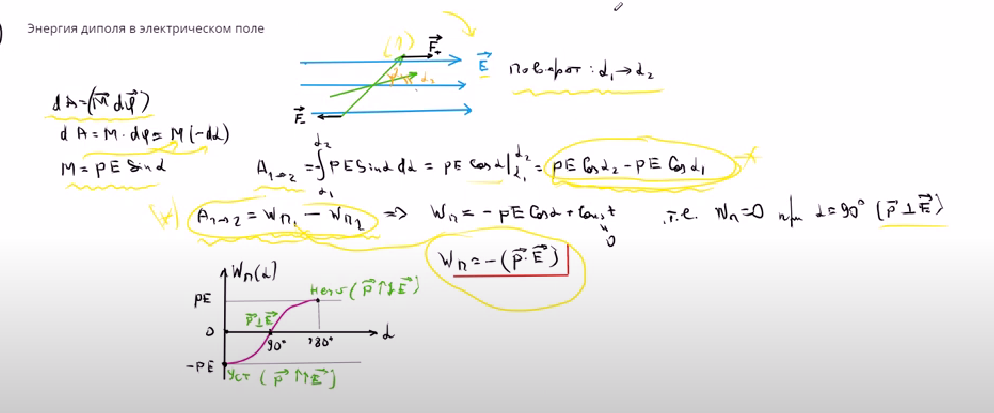 Энергия диполя в электрическом поле
(1) F₊
E
α₂
Поворот: α₁→α₂
F₋
dA=(M dφ)
dA=M·dφ=M(-dα)
M=pE Sinα
A₁→₂ = ∫ pE Sinα dα = pE Cosα | = pE Cosα₂ - pE Cosα₁
α₂ α₁ α₂ α₁
A₁→₂=Wп₁ - Wп₂ => Wп = -pE Cosα + Const т.е. Wп=0 при α=90° (p⊥E)
0
Wп=-(p·E)
Wп(α)
pE Неуст (p↑↓E)
p⊥E
0 90° 180° α
-pE
Уст (p↑↑E)